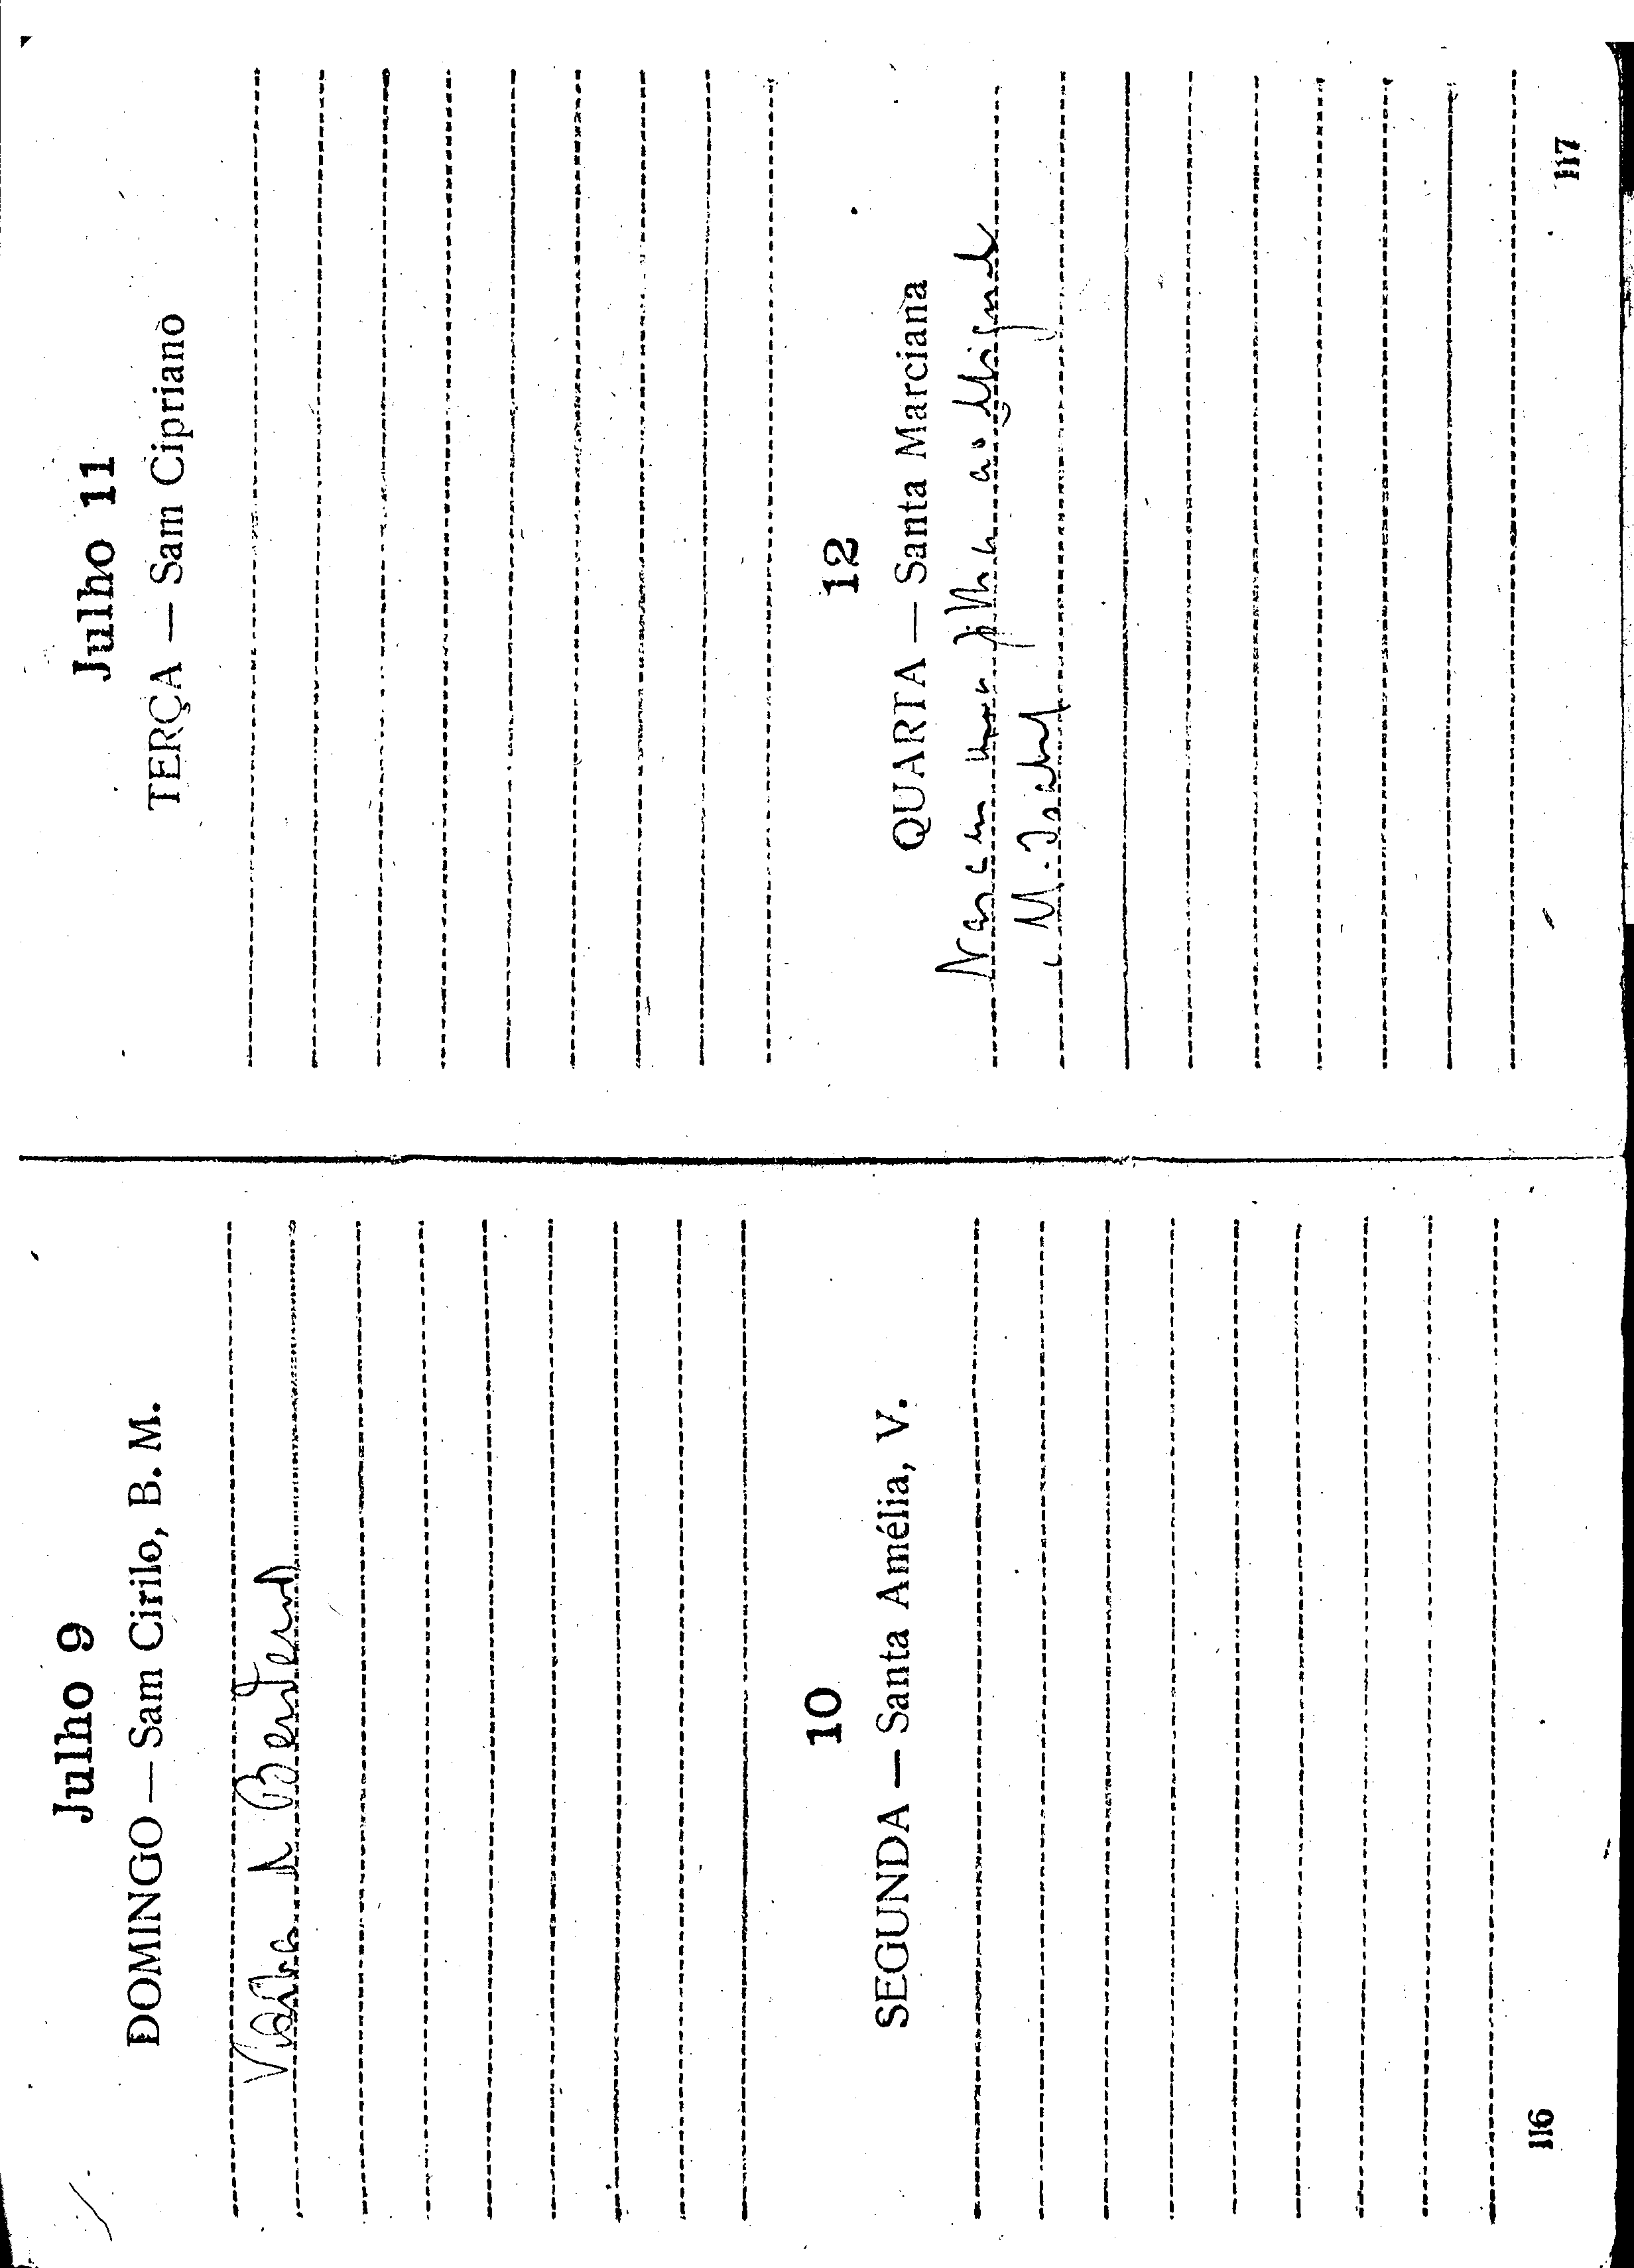 Julho 9
DOMINGO — Sam Cirilo, B. M.
Visita A
10
SEGUNDA — Santa Amélia, V.
116
Julho 11
TERÇA — Sam Cipriano
12
QUARTA — Santa Marciana
Nasceu uma filha ao Miguel
e M. Isabel
117